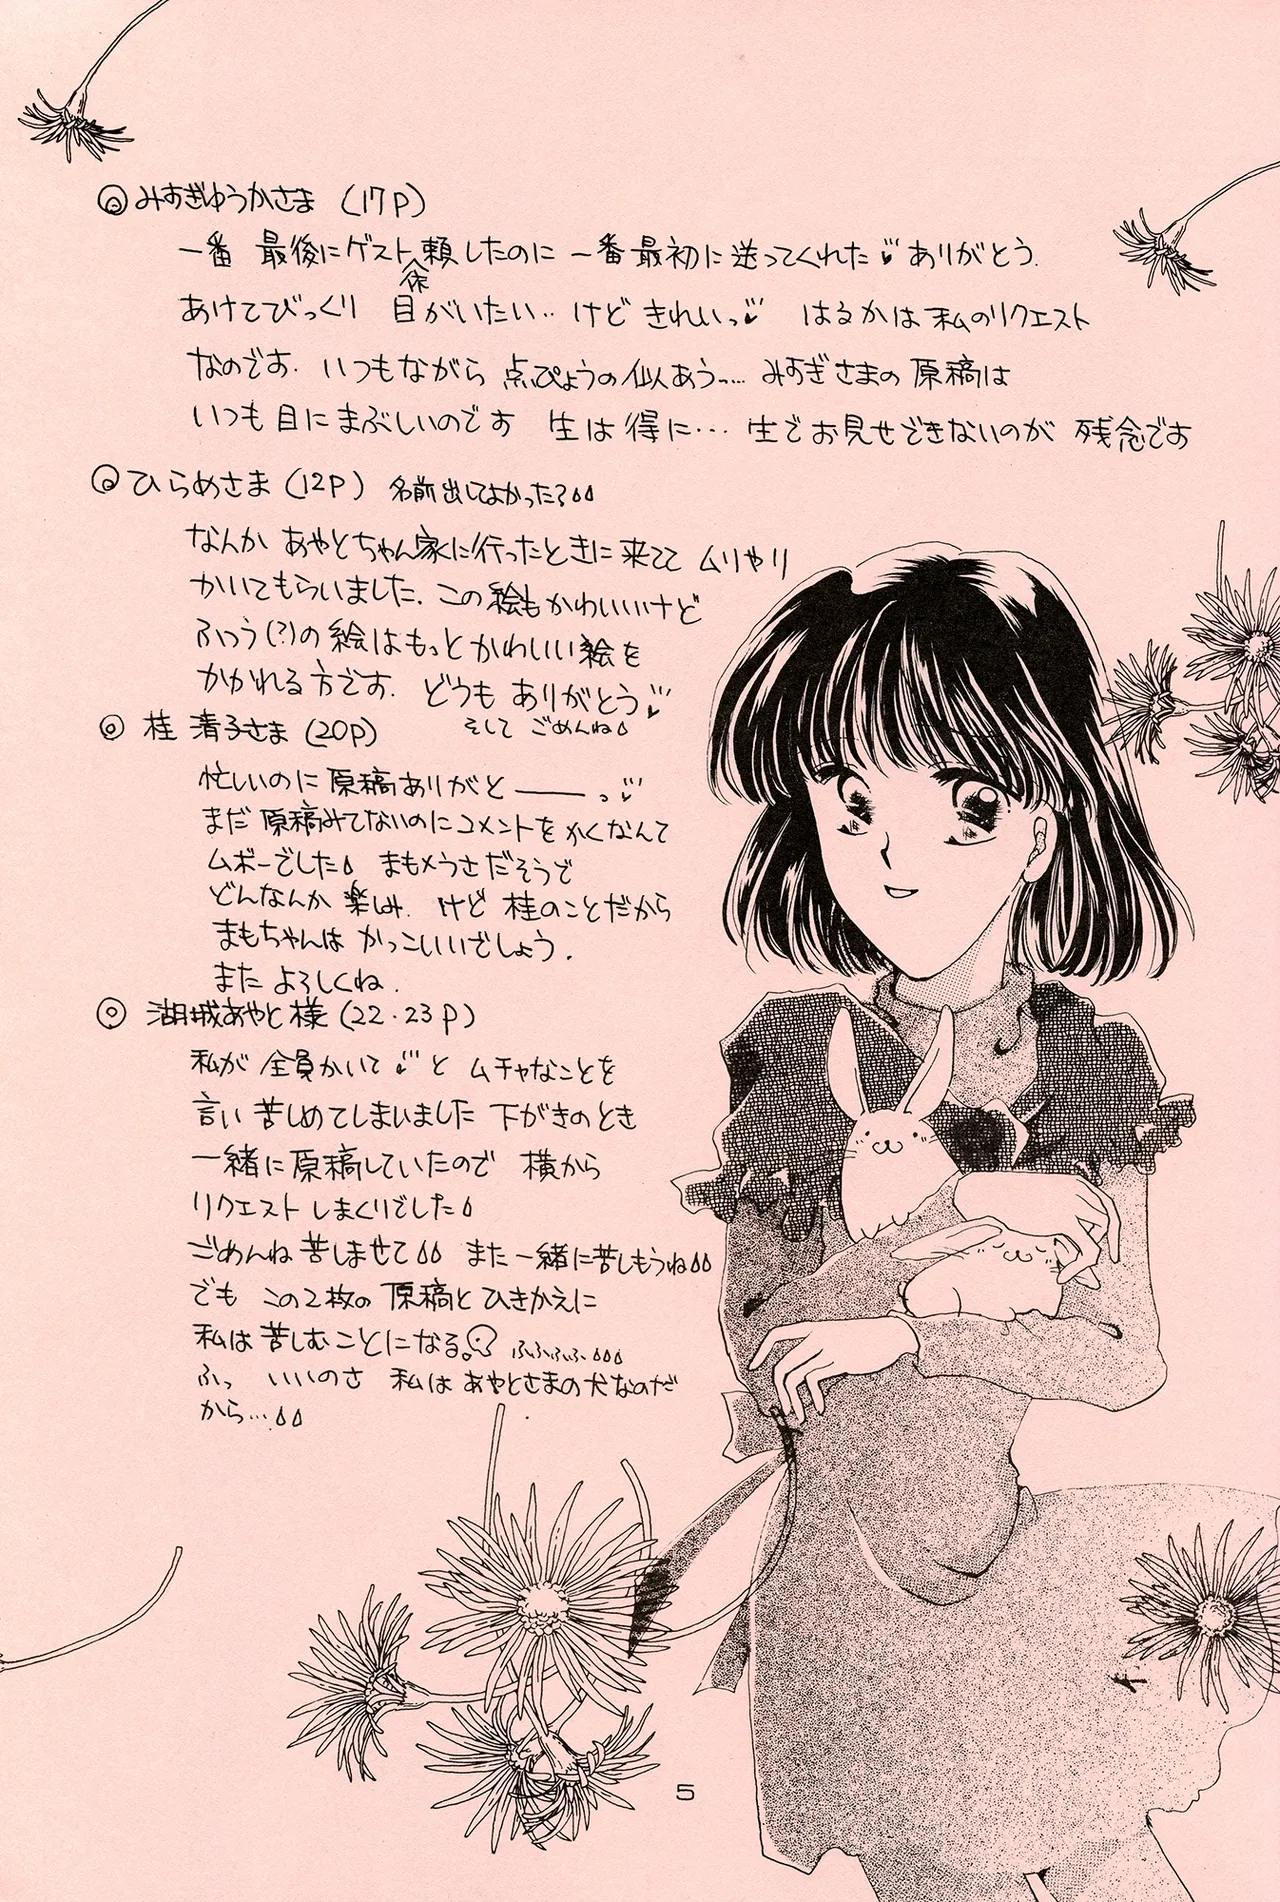 ◎みすぎゆうかさま (17P)
一番 最後にゲスト依頼したのに 一番最初に送ってくれた♥ ありがとう.
あけてびっくり 目がいたい‥ けど きれいっ♥ はるかは 私のリクエスト
なのです. いつもながら 点びょうの似あうっ… みすぎさまの 原稿は
いつも 目に まぶしいのです 生は 得に… 生でお見せできないのが 残念です
◎ひらめさま (12P) 名前出してよかった?
なんか あやとちゃん家に行ったときに 来てて ムリやり
かいてもらいました. この絵もかわいいけど
ふつう(?)の絵はもっとかわいい絵を
かかれる方です. どうも ありがとう♥
そして ごめんね
◎ 桂 清子さま (20P)
忙しいのに 原稿ありがと——っ♥
まだ 原稿みてないのにコメントをかくなんて
ムボーでした まも×うさだそうで
どんなんか 楽しみ. けど 桂のことだから
まもちゃんは かっこいいでしょう.
また よろしくね.
◎ 湖城あやと様 (22・23P)
私が 全員かいて♥ と ムチャなことを
言い 苦しめてしまいました 下がきのとき
一緒に 原稿していたので 横から
リクエスト しまくりでした
ごめんね 苦しませて また 一緒に苦しもうね
でも この2枚の 原稿と ひきかえに
私は 苦しむことになる。 ふふふふふ
ふっ いいのさ 私は あやとさまの犬なのだ
から…
5